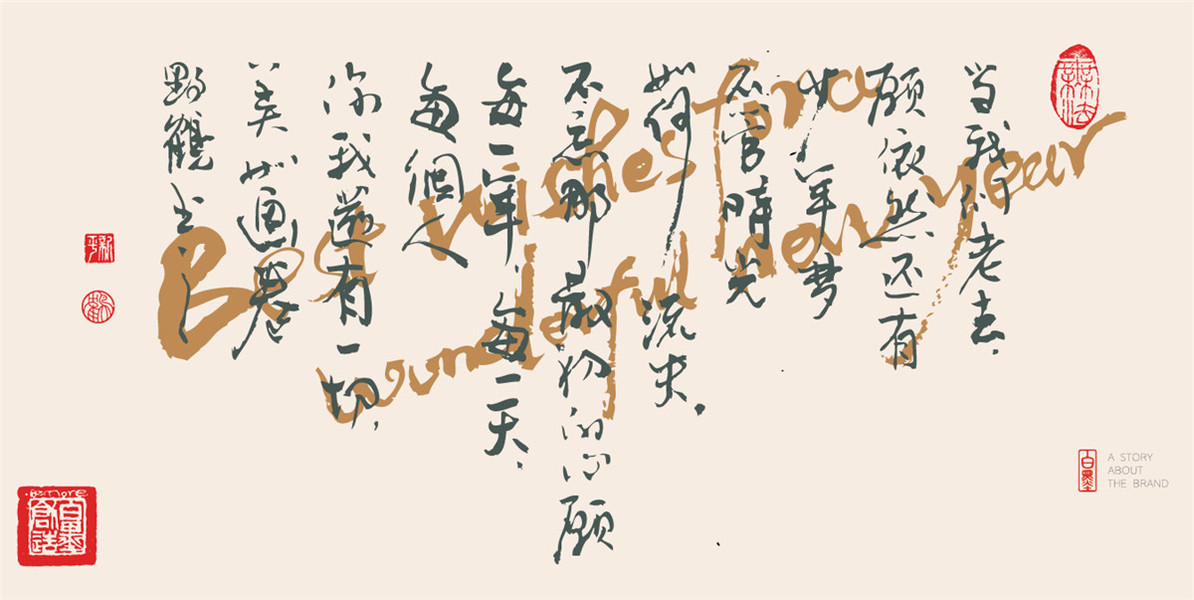 当我们老去.
願依然还有
少年梦
不管時光
如何流失.
不忘那最初的心願
每一年,每一天.
每個人
你我還有一切,
美如画卷
野鶴书
Best wishes for a
wonderful new year
百墨
A STORY
ABOUT
THE BRAND